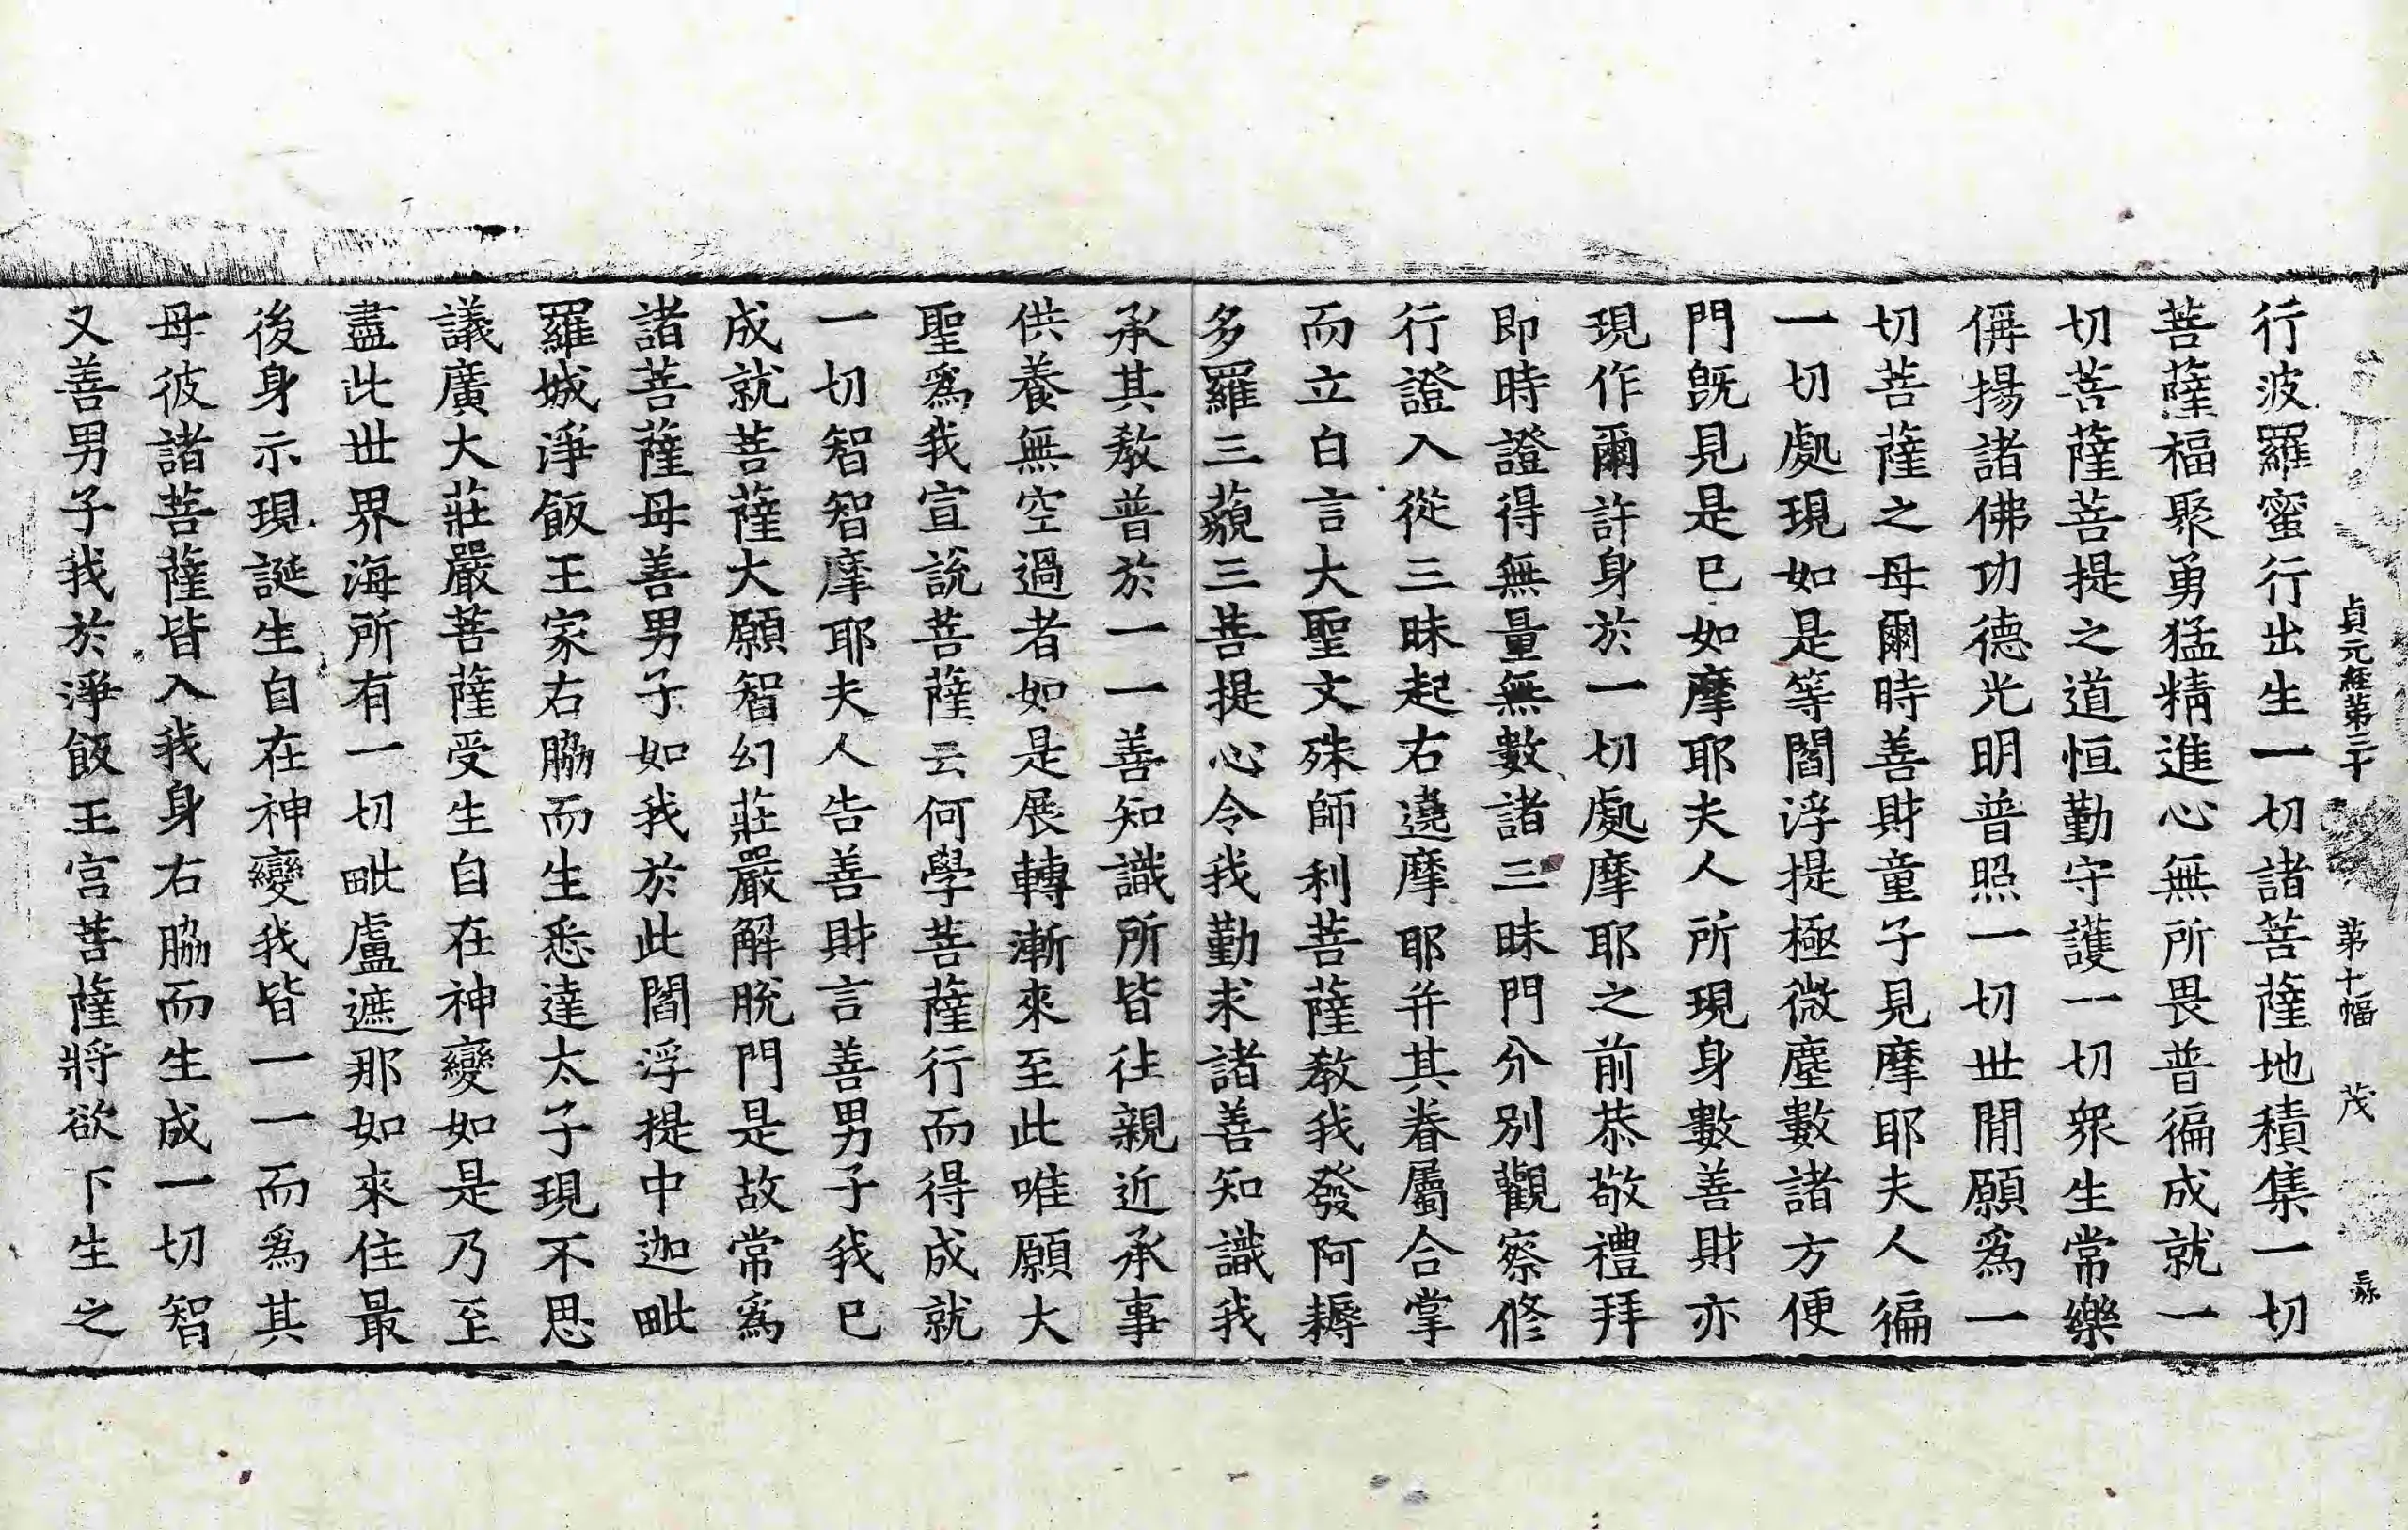 貞元經第三十 第十幅 茂
行波羅蜜行出生一切諸菩薩地積集一切
菩薩福聚勇猛精進心無所畏普徧成就一
切菩薩菩提之道恒勤守護一切衆生常樂
偁揚諸佛功德光明普照一切世閒願爲一
切菩薩之母爾時善財童子見摩耶夫人徧
一切處現如是等閻浮提極微塵數諸方便
門旣見是已如摩耶夫人所現身數善財亦
現作爾許身於一切處摩耶之前恭敬禮拜
即時證得無量無數諸三昧門分別觀察修
行證入從三昧起右遶摩耶并其眷屬合掌
而立白言大聖文殊師利菩薩教我發阿耨
多羅三藐三菩提心令我勤求諸善知識我
承其教普於一一善知識所皆往親近承事
供養無空過者如是展轉漸來至此唯願大
聖爲我宣說菩薩云何學菩薩行而得成就
一切智智摩耶夫人告善財言善男子我已
成就菩薩大願智幻莊嚴解脫門是故常爲
諸菩薩母善男子如我於此閻浮提中迦毗
羅城淨飯王家右脇而生悉達太子現不思
議廣大莊嚴菩薩受生自在神變如是乃至
盡此世界海所有一切毗盧遮那如來住最
後身示現誕生自在神變我皆一一而爲其
母彼諸菩薩皆入我身右脇而生成一切智
又善男子我於淨飯王宮菩薩將欲下生之